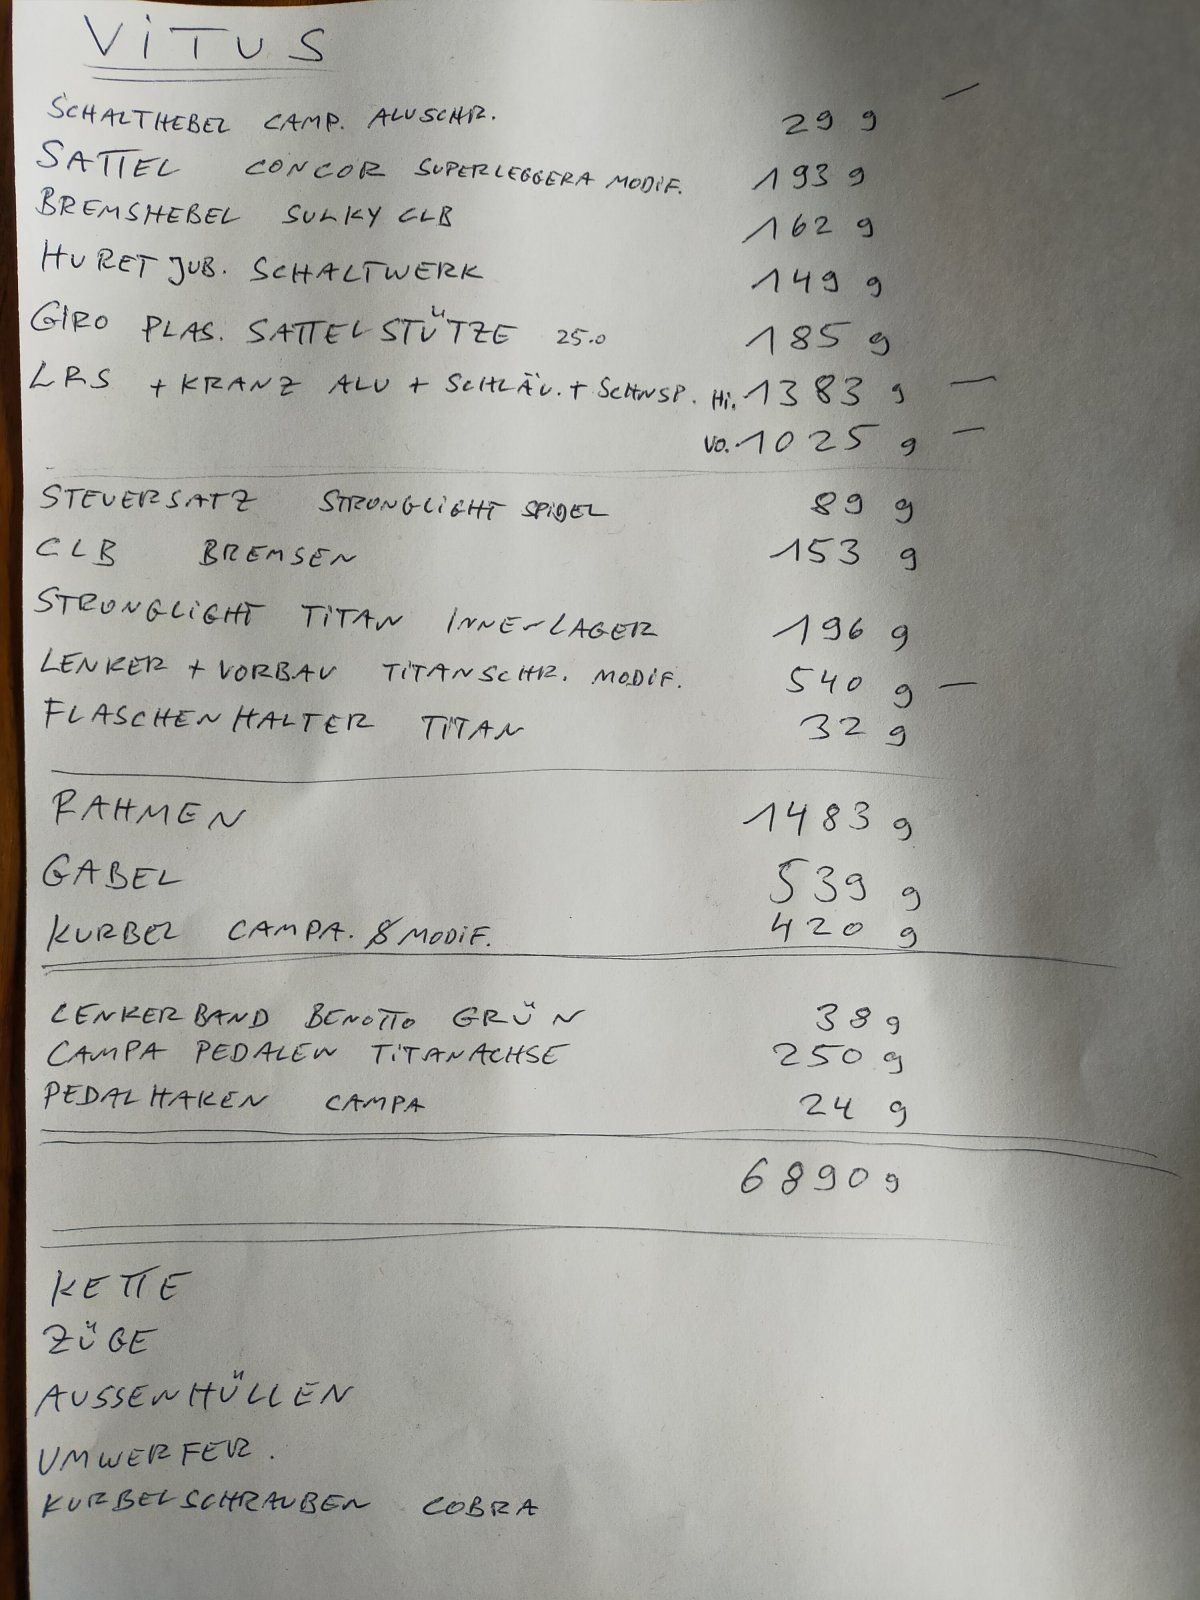 VITUS
SCHALTHEBEL CAMP. ALUSCHR. 29 g –
SATTEL CONCOR SUPERLEGGERA MODIF. 193 g
BREMSHEBEL SULKY CLB 162 g
HURET JUB. SCHALTWERK 149 g
GIRO PLAS. SATTELSTÜTZE 25.0 185 g
LRS + KRANZ ALU + SCHLÄU. + SCHNSP. Hi. 1383 g –
VO. 1025 g –
STEUERSATZ STRONGLIGHT SPIDEL 89 g
CLB BREMSEN 153 g
STRONGLIGHT TITAN INNENLAGER 196 g
LENKER + VORBAU TITANSCHR. MODIF. 540 g –
FLASCHENHALTER TITAN 32 g
RAHMEN 1483 g
GABEL 539 g
KURBEL CAMPA. MODIF. 420 g
LENKERBAND BENOTTO GRÜN 38 g
CAMPA PEDALEN TITANACHSE 250 g
PEDALHAKEN CAMPA 24 g
6890 g
KETTE
ZÜGE
AUSSENHÜLLEN
UMWERFER.
KURBELSCHRAUBEN COBRA